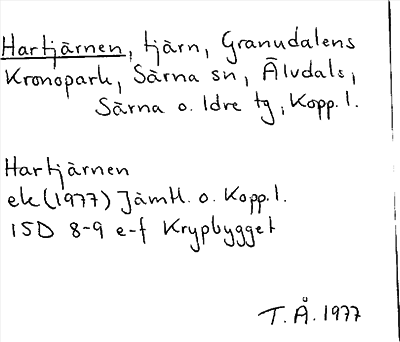 Hartjärnen, tjärn, Granudalens
Kronopark, Särna sn, Älvdals,
Särna o. Idre tg, Kopp.l.
Hartjärnen
ek (1977) Jämtl. o. Kopp.l.
15D 8-9 e-f Krypbygget
T.Å. 1977